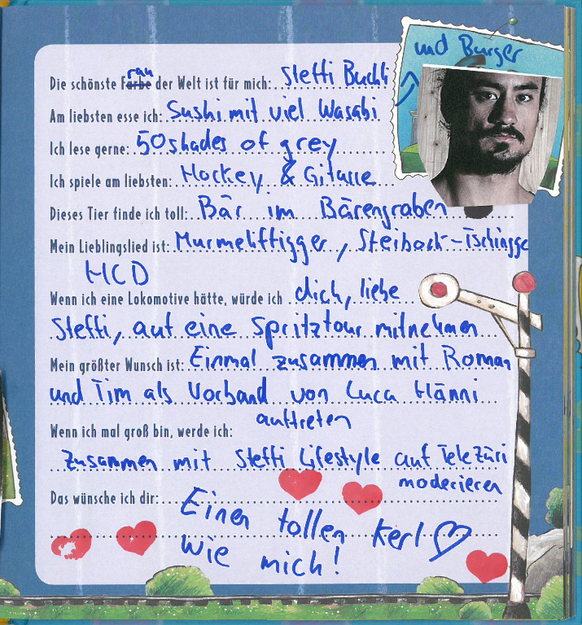 und Burger
Die schönste Farbe rau der Welt ist für mich: Steffi Buchli
Am liebsten esse ich: Sushi mit viel Wasabi
Ich lese gerne: 50 shades of grey
Ich spiele am liebsten: Hockey & Gitarre
Dieses Tier finde ich toll: Bär im Bärengraben
Mein Lieblingslied ist: Murmeltfigger, Steibock-Tschingge
HCD
Wenn ich eine Lokomotive hätte, würde ich dich, liebe
Steffi, auf eine Spritztour mitnehmen
Mein größter Wunsch ist: Einmal zusammen mit Roman
und Tim als Vorband von Luca Hänni
auftreten
Wenn ich mal groß bin, werde ich:
zusammen mit Steffi Lifestyle auf Tele Züri
moderieren
Das wünsche ich dir: Einen tollen Kerl
wie mich!